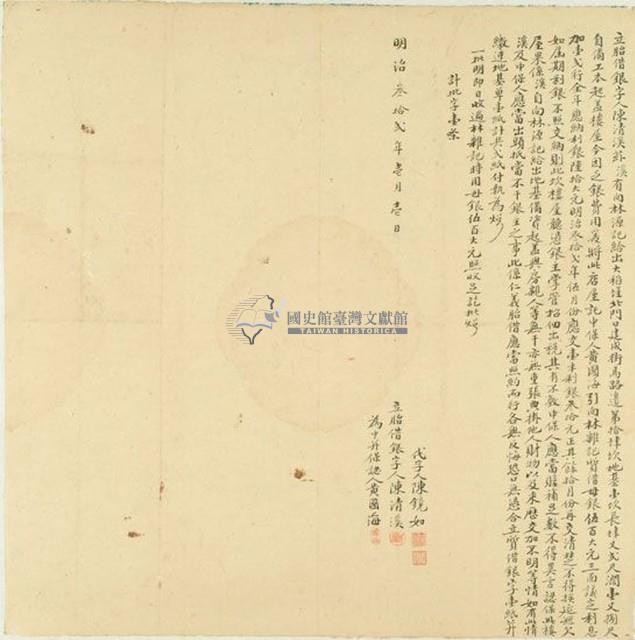 立胎借銀字人陳清溪茲溪有向林源記給出大稻埕北門口建成街馬路邊第拾肆坎地基壹坎長肆丈弍尺濶壹丈捌尺
自備工本起盖樓屋今因乏銀費用爰將此店屋託中保人黃國海引向林雜記胎借母銀伍百大元三面議定利息
加壹弍行全年應納利銀陸拾大元明治叁拾弍年伍月份應交壹半利銀叁拾元正其餘拾月份再交清楚不得挨延短欠
如届期利銀不照交納則此坎樓屋聽憑銀主掌管招佃出稅其有不敷中保人應當賠補足數不得異言認保此樓
屋果係溪自向林源記給出地基備資起盖與房親人等無干亦無重張典掛他人財物以及來歷交加不明等情如有此情
溪及中保人應當出頭抵當不干銀主之事此係仁義胎借應當照約而行各無反悔恐口無憑合立胎借銀字壹紙并
繳連地基單壹紙計共弍紙付執為炤
一批明即日收過林雜記時用母銀伍百大元照收足訖批炤
計批字壹條
明治叁拾弍年壹月壹日
代字人陳鏡如
立胎借銀字人陳清溪
為中并保認人黃國海
國史館臺灣文獻館
TAIWAN HISTORICA